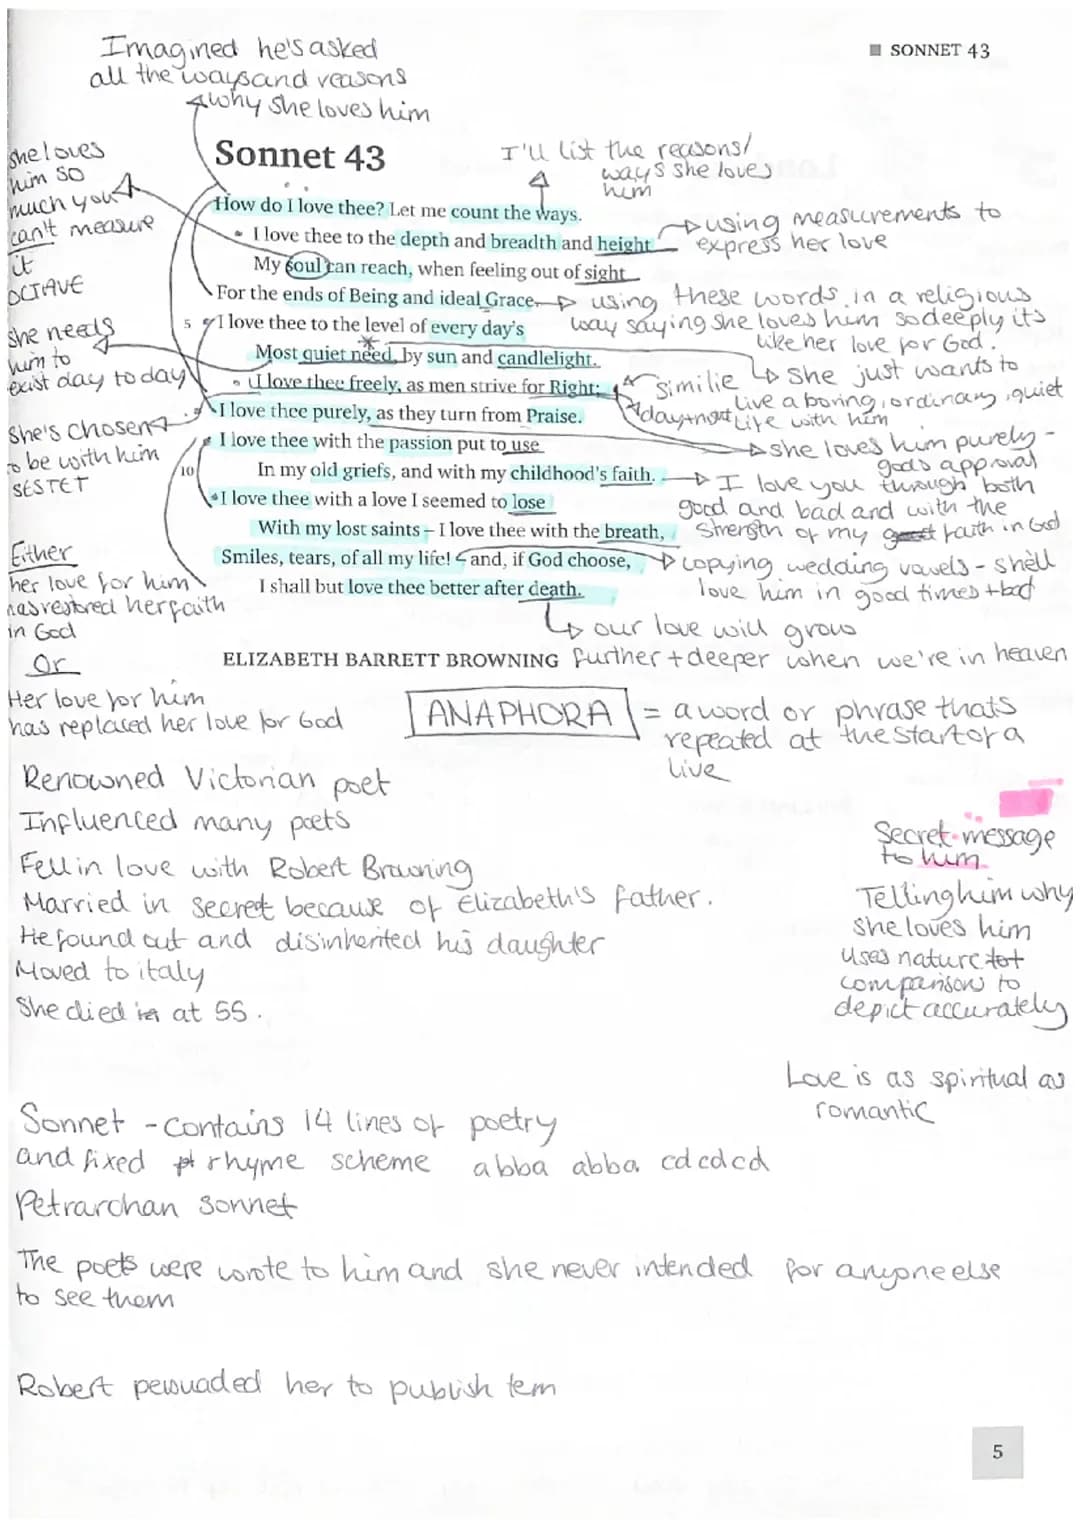 Imagined he's asked
all the ways and reasons
why she loves him
SONNET 43
she loves
him so
much you
can't measure
it
OCTAVE
she needs
him to
exist day to day
She's chosen
to be with him
SESTET
Either
her love for him
has restored her faith
in God
Or
Her love for him
has replaced her love for God
Sonnet 43
I'll list the reasons/
ways she loves
him
How do I love thee? Let me count the ways.
I love thee to the depth and breadth and height
My soul can reach, when feeling out of sight
For the ends of Being and ideal Grace.
5 I love thee to the level of every day's
Most quiet need, by sun and candlelight.
I love thee freely, as men strive for Right;
I love thee purely, as they turn from Praise.
I love thee with the passion put to use
10 In my old griefs, and with my childhood's faith.
I love thee with a love I seemed to lose
With my lost saints – I love thee with the breath,
Smiles, tears, of all my life! – and, if God choose,
I shall but love thee better after death.
ELIZABETH BARRETT BROWNING
using measurements to
express her love
using these words in a religious
way saying she loves him so deeply its
like her love for God.
similie
day+night
she just wants to
live a boring, ordinary, quiet
life with him
she loves him purely -
gods approval
I love you through both
good and bad and with the
strength of my faith in God
copying wedding vowels - shell
love him in good times + bad
our love will grow
further + deeper when we're in heaven
ANAPHORA = a word or phrase thats
repeated at the start of a
live
Renowned Victorian poet
Influenced many poets
Fell in love with Robert Browning
Married in secret because of Elizabeth's father.
He found out and disinherited his daughter
Moved to italy
She died in at 55.
Secret message
to him
Telling him why
she loves him
uses nature tot
comparison to
depict accurately
Love is as spiritual as
romantic
Sonnet - contains 14 lines of poetry
and fixed pt rhyme scheme abba abba cdcdcd
Petrarchan sonnet
The poets were wrote to him and she never intended for anyone else
to see them
Robert persuaded her to publish tem
5